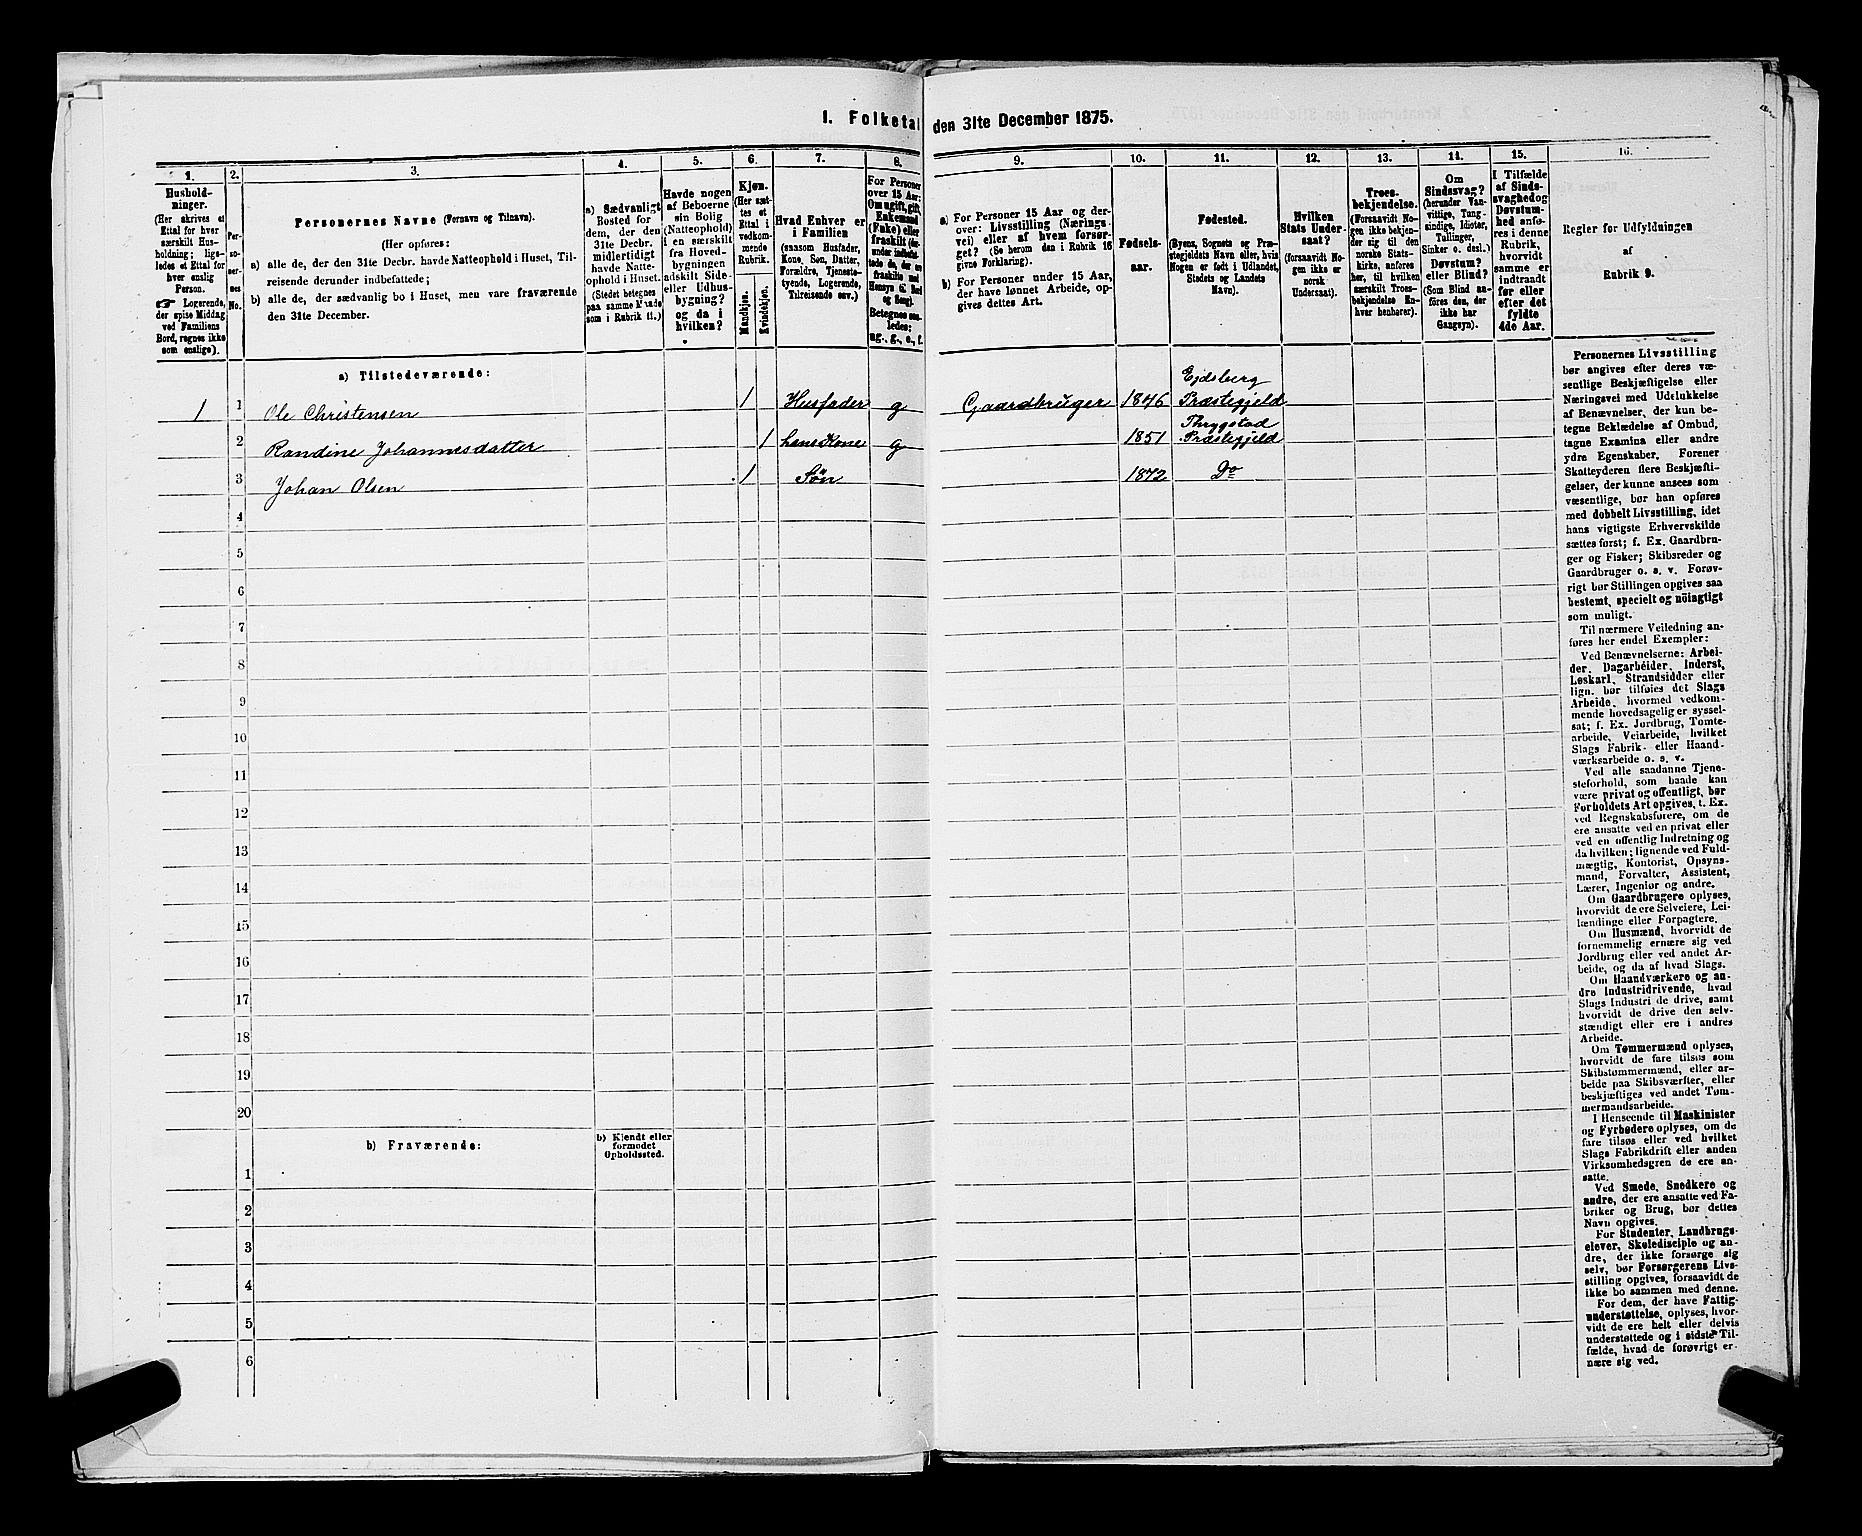 1. Folketal den 31te December 1875.
1. 2. 3. 4. 5. 6. 7. 8. 9. 10. 11. 12. 13. 14. 15. 16.
Hushold-
ninger.
(Her skrives et
Ettal for hver
særskilt Hus-
holdning; ligs-
ledes et Ettal for
hver enslig
Person.
☞ Logerende,
der spise Middag
ved Familiens
Bord, regnes ikke
som enslige).
Per-
so-
ner-
nes
No.
Personernes Navne (Fornavn og Tilnavn).
(Her opføres:
a) alle de, der den 31te Decbr. havde Natteophold i Huset, Til-
reisende derunder indbefattede;
b) alle de, der sædvanlig bo i Huset, men vare fraværende
den 31te December.
a) Sædvanligt
Bosted for
dem, der den
31te Decbr.
midlertidigt
havde Natte-
ophold i Huset.
(Stedet betegnes
paa samme Maade
som i Rubrik 11.)
Havde nogen
af Beboerne
sin Bolig
(Natteophold)
i en særskilt
fra Hoved-
bygningen
adskilt Side-
eller Udhus-
bygning?
og da i
hvilken?
Kjøn.
(Her sæt-
tes et
Ettal i
vedkom-
mende
Rubrik.
Mandkjøn.
Kvindekjøn.
Hvad Enhver er
i Familien
(saasom Husfader,
Kone, Søn, Datter,
Forældre, Tjeneste-
tyende, Logerende,
Tilreisende osv.)
For Personer
over 15 Aar:
Om ugift, gift,
Enkemand
(Enke) eller
fraskilt
Betegnes saa-
ledes:
ug., g., e., f.
a) For Personer 15 Aar og der-
over: Livsstilling (Nærings-
vei) eller af hvem forsør-
get? (Se herom den i Rubrik 16
givne Forklaring).
b) For Personer under 15 Aar,
der have lønnet Arbeide, op-
gives dettes Art.
Fødsels-
aar.
Fødested.
(Byens, Sognets og Præ-
stegjeldets Navn eller, hvis
Nogen er født i Udlandet,
Stedets og Landets
Navn).
Hvilken
Stats Under-
saat?
(forsaavidt No-
gen ikke er
norsk
Undersaat).
Troes-
bekjendelse.
(Forsaavidt No-
gen ikke bekjen-
der sig til den
norske Stats-
kirke, anføres
her, til hvilken
særskilt Troes-
bekjendelse En-
hver henhører).
Om
Sindssvag?
(herunder Van-
vittige, Tung-
sindige, Idioter,
Tullinger,
Sinker o. desl.)
Døvstum?
eller Blind?
(Som Blind an-
føres den, der
ikke har
Gangsyn).
I Tilfælde
af Sinds-
svaghed og
Døvstum-
hed anfø-
res i denne
Rubrik,
hvorvidt
samme er
indtraadt
før eller
efter det
fyldte
4de Aar.
Regler for Udfyldningen
af
Rubrik 9.
a) Tilstedeværende:
1 1 Ole Christensen 1 Husfader g Gaardbruger 1846 Ejdsberg
Præstegjeld
2 Randine Johannesdatter 1 hans Kone g 1851 Thrygstad
Præstegjeld
3 Johan Olsen 1 Søn 1872 Do
4
5
6
7
8
9
10
11
12
13
14
15
16
17
18
19
20
b) Fraværende:
b) Kjendt eller
formodet
Opholdssted.
1
2
3
4
5
6
Personernes Livsstilling
bør angives efter deres væ-
sentlige Beskjæftigelse eller
Næringsvei med Udelukkelse
af Benævnelser, der kun be-
tegne Beklædelse af Ombud,
tagne Examina eller andre
ydre Egenskaber. Forener
Skatteyderen flere Beskjæfti-
gelser, der kunne ansees som
væsentlige, bør han opføres
med dobbelt Livsstilling, idet
hans vigtigste Erhvervskilde
sættes først; f. Ex. Gaardbru-
ger og Fisker; Skibsreder og
Gaardbruger o. s. v. Forøv-
rigt bør Stillingen opgives saa
bestemt, specielt og nöiagtigt
som muligt.
Til nærmere Veiledning an-
føres her endel Exempler:
Ved Benævnelserne: Arbei-
der, Dagarbeider, Inderst,
Løskarl, Strandsidder eller
lign. bør tilføies det Slags
Arbeide, hvormed vedkom-
mende hovedsagelig er syssel-
sat; f. Ex. Jordbrug, Tomte-
arbeide, Veiarbeide, hvilket
Slags Fabrik- eller Haand-
værksarbeide o. s. v.
Ved alle saadanne Tjene-
steforhold, som baade kan
være privat og offentligt, bør
Forholdets Art opgives, t. Ex.
ved Regnskabsførere, om de
ere ansatte ved en privat eller
ved en offentlig Indretning og
da hvilken; lignende ved Fuld-
mægtig, Kontorist, Opsyns-
mand, Forvalter, Assistent,
Lærer, Ingeniør og andre.
Om Gaardbrugere oplyses,
hvorvidt de ere Selveiere, Lei-
lændinge eller Forpagtere.
Om Husmænd, hvorvidt de
fornemmelig ernære sig ved
Jordbrug eller ved andet Ar-
beide, og da af hvad Slags.
Om Haandværkere og an-
dre Industridrivende, hvad
Slags Industri de drive, samt
hvorvidt de drive den selv-
stændigt eller ere i andres
Arbeide.
Om Tømmermænd oplyses,
hvorvidt de fare tilsøs som
Skibstømmermænd, eller ar-
beide paa Skibsværfter, eller
beskjæftiges ved andet Tøm-
mermandsarbeide.
I Henseende til Maskinister
og Fyrbødere oplyses, om de
fare tilsøs eller ved hvilket
Slags Fabrikdrift eller anden
Virksomhedsgren de ere an-
satte.
Ved Smede, Snedkere og
andre, der ere ansatte ved Fa-
briker og Brug, bør dettes
Navn opgives.
For Studenter, Landbrugs-
elever, Skoledisciple og an-
dre, der ikke forsørge sig
selv, bør Forsørgerens Livs-
stilling opgives, forsaavidt de
ikke bo sammen med denne.
For dem, der have Fattig-
understøttelse, oplyses, hvor-
vidt de ere helt eller delvis
understøttede og i sidste Til-
fælde, hvad de forøvrigt er-
nære sig ved.